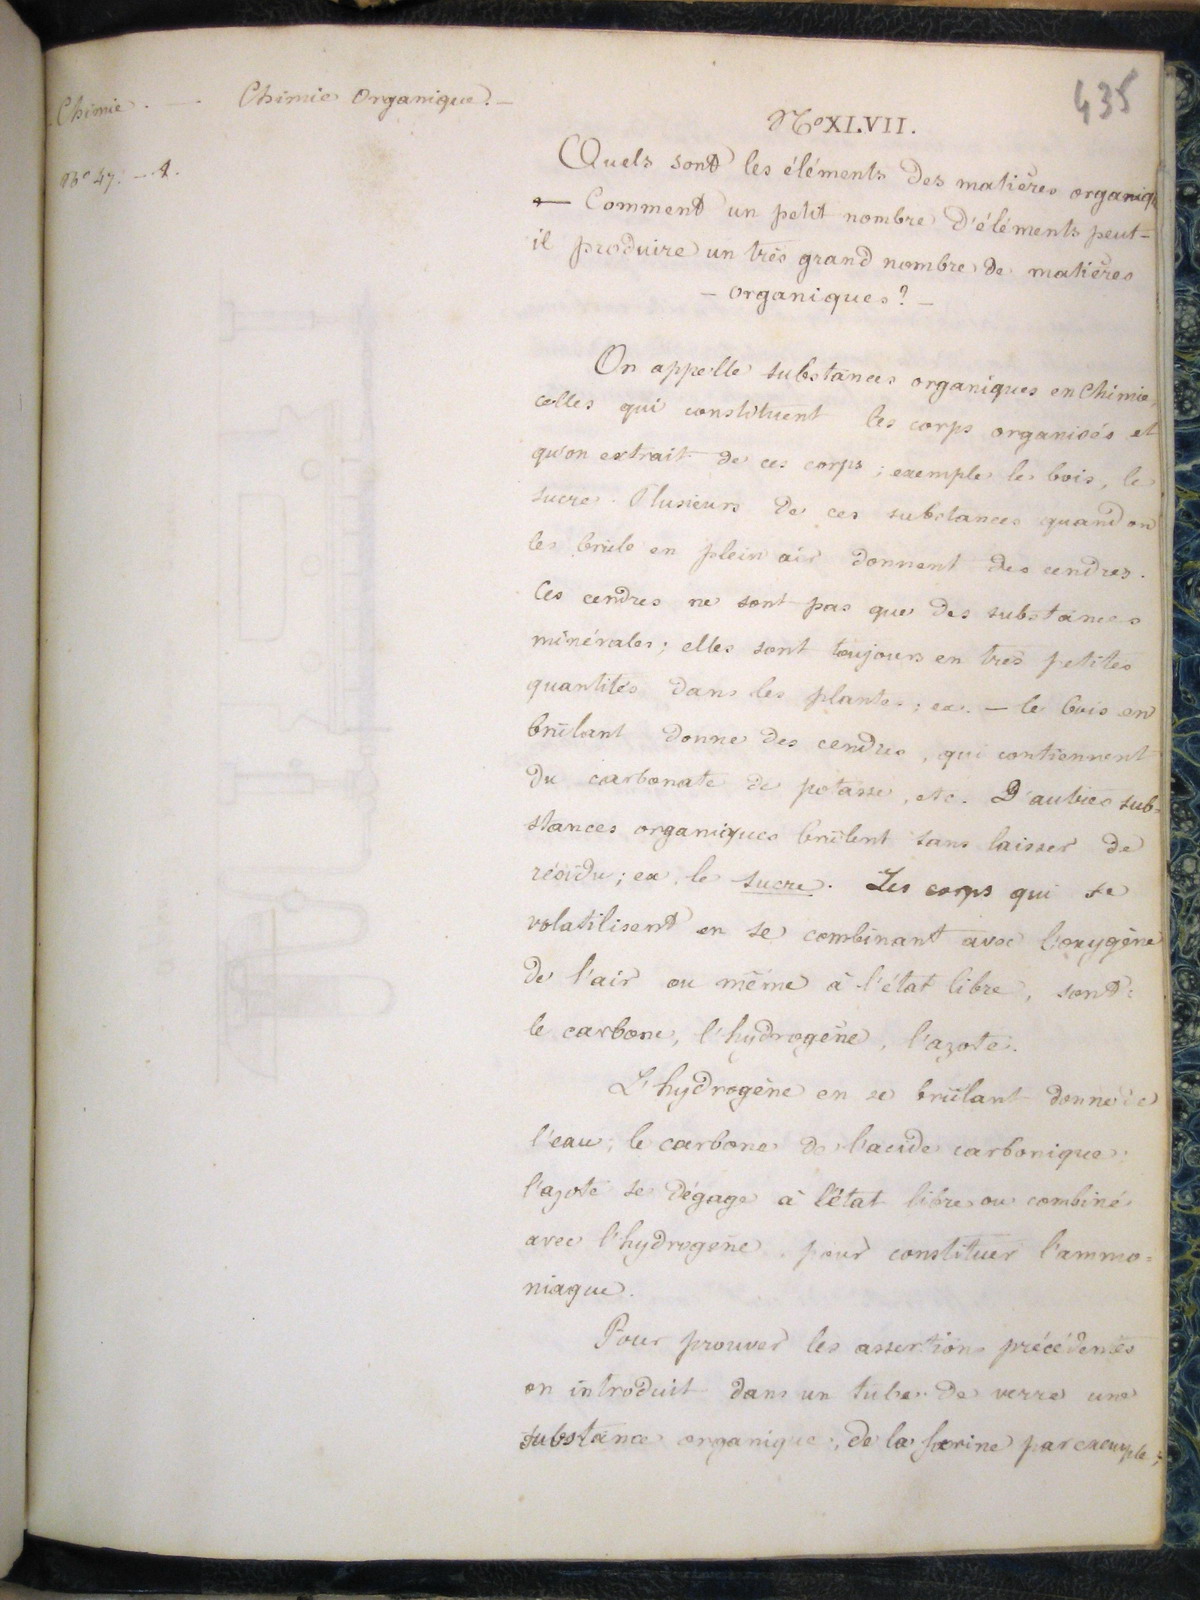 Chimie. — Chimie Organique. —
435
No 47. — 1.
No XLVII.
Quels sont les éléments des matières organiq
— Comment un petit nombre d'éléments peut-
il produire un très grand nombre de matières
— organiques? —
On appelle substances organiques en Chimie,
celles qui constituent les corps organisés et
qu'on extrait de ces corps ; exemple le bois, le
sucre. Plusieurs de ces substances quand on
les brûle en plein air donnent des cendres.
Ces cendres ne sont pas que des substances
minérales ; elles sont toujours en très petites
quantités dans les plantes ; ex. — le bois en
brûlant donne des cendres, qui contiennent
du carbonate de potasse, etc. D'autres sub-
stances organiques brûlent sans laisser de
résidu ; ex. le sucre. Les corps qui se
volatilisent en se combinant avec l'oxygène
de l'air ou même à l'état libre, sont :
le carbone, l'hydrogène, l'azote.
L'hydrogène en se brûlant donne de
l'eau ; le carbone de l'acide carbonique ;
l'azote se dégage à l'état libre ou combiné
avec l'hydrogène, pour constituer l'ammo-
niaque.
Pour prouver les assertions précédentes
on introduit dans un tube de verre une
substance organique, de la farine par exemple ;